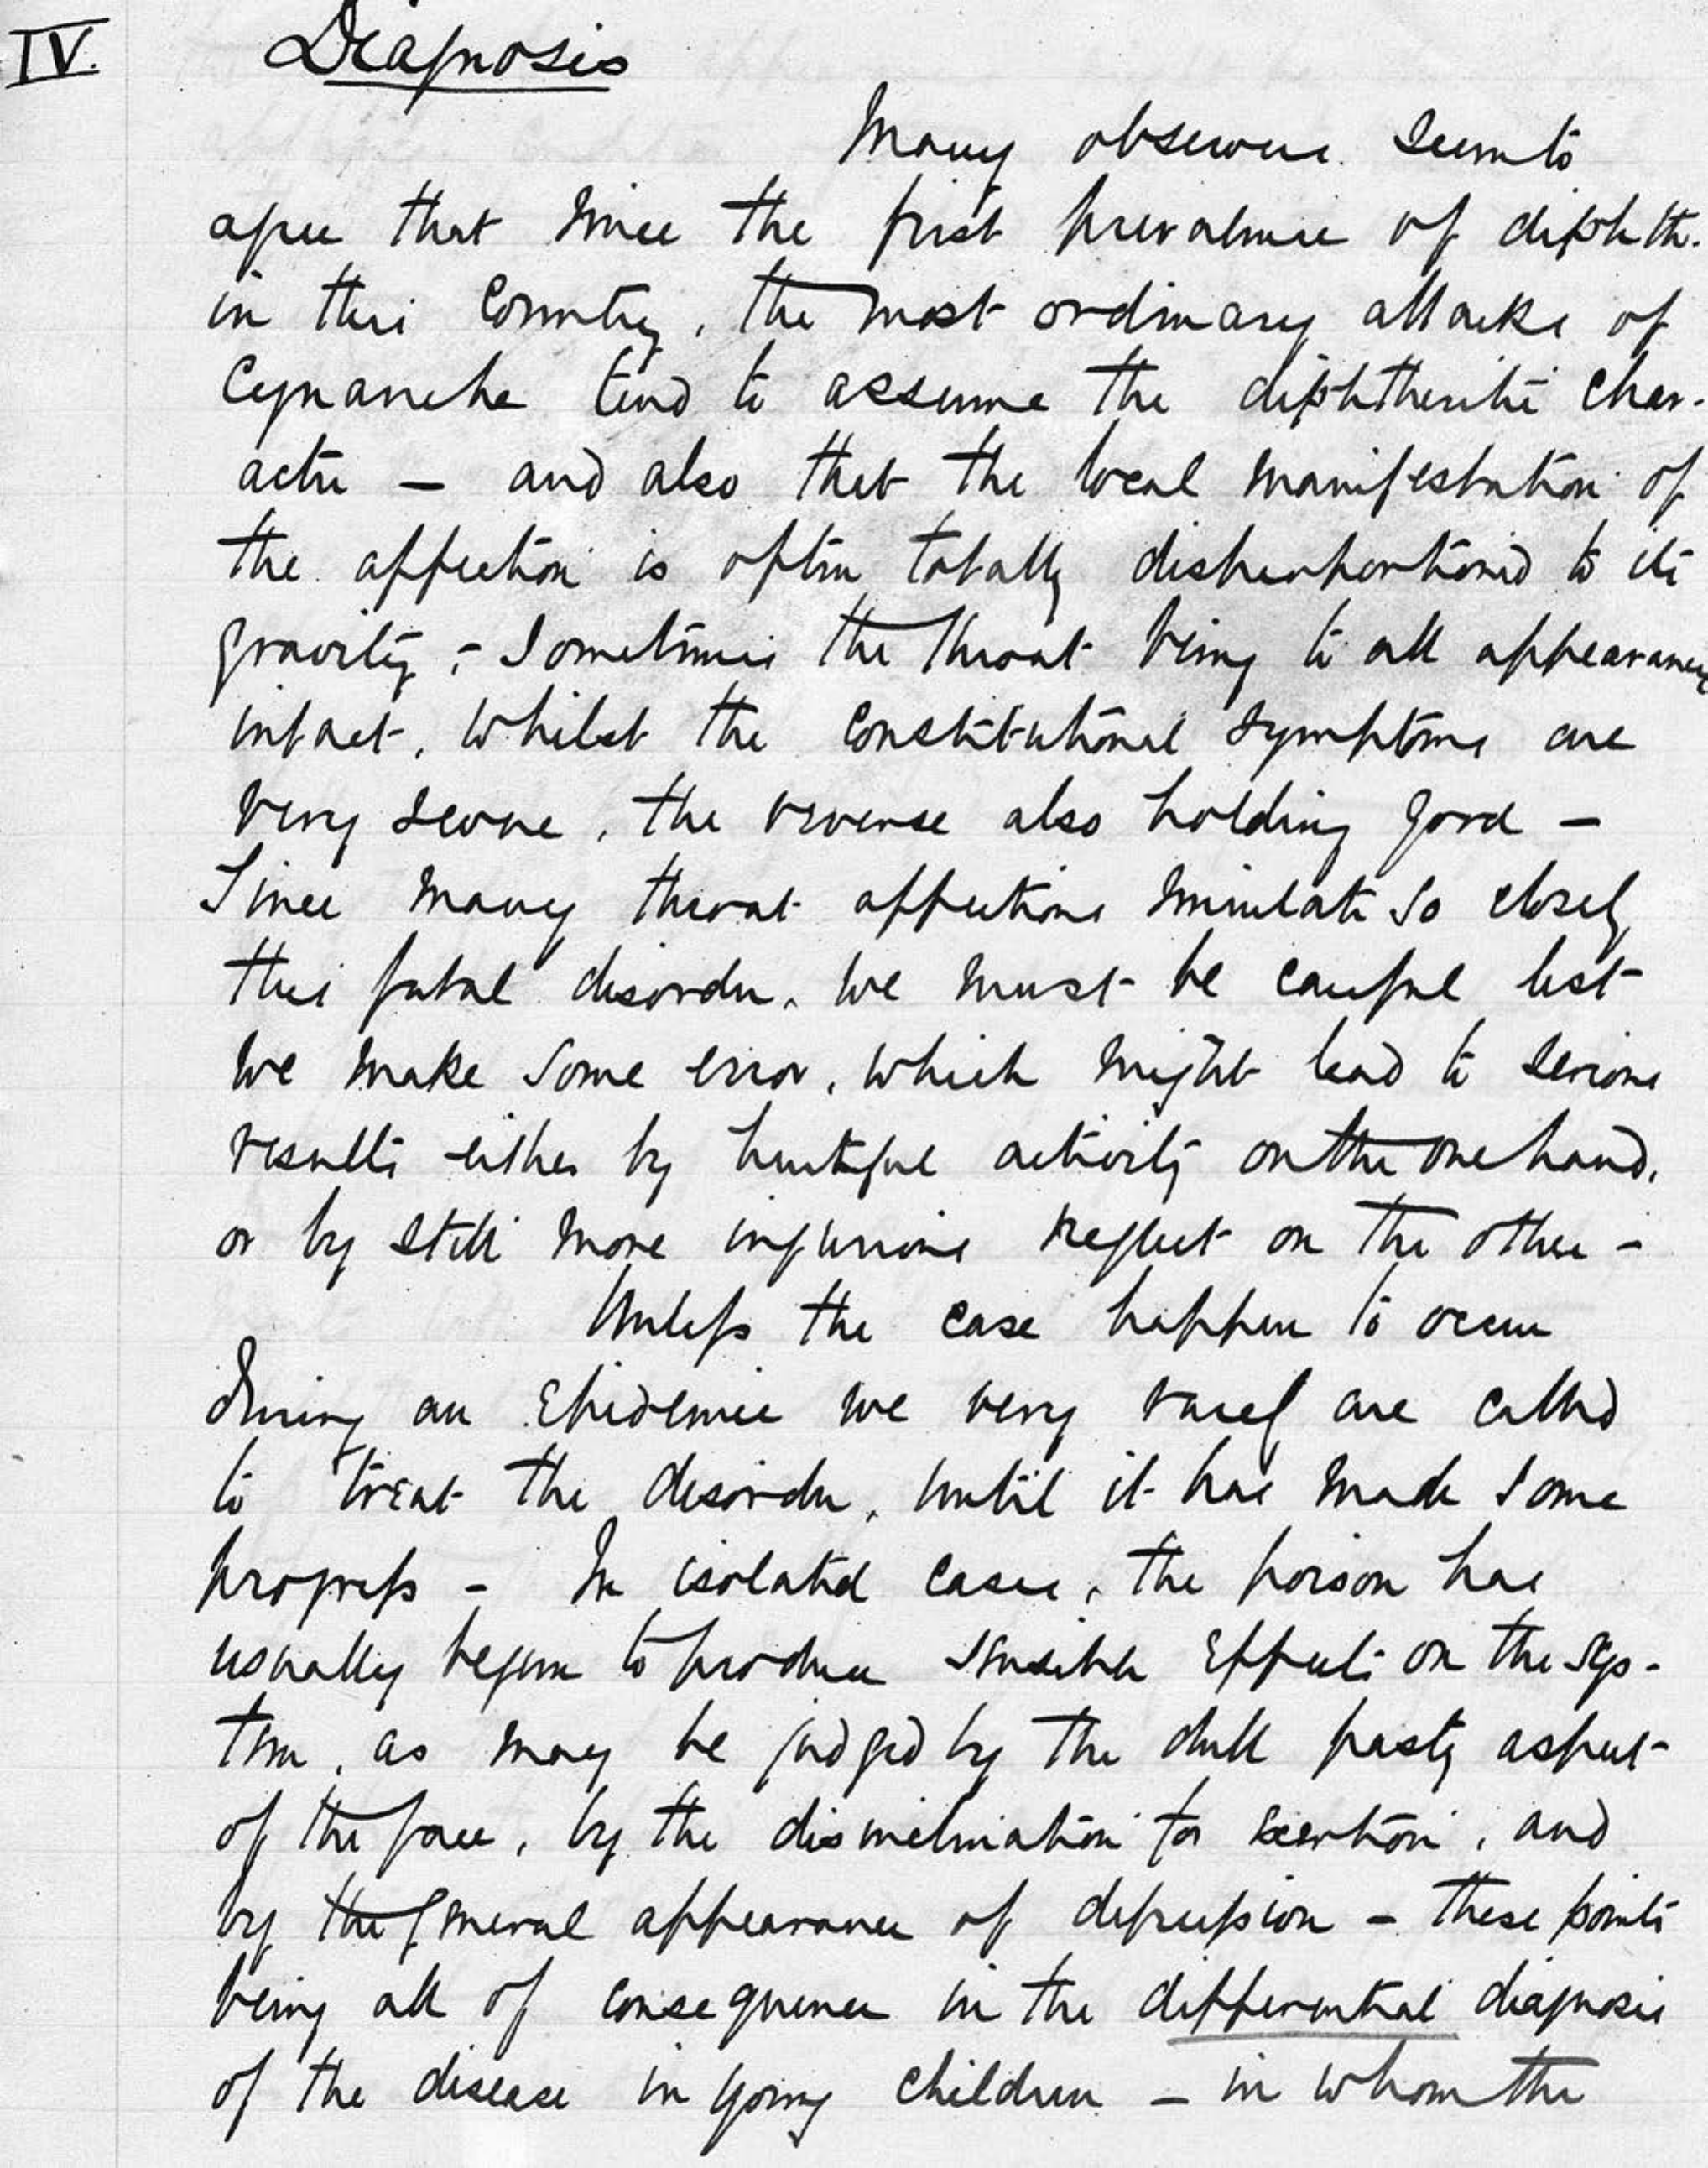 IV. Diagnosis
Many observers seem to
agree that since the first prevalence of diphth.
in this Country, the most ordinary attacks of
Cynanche tend to assume the diphtheritic char-
acter — and also that the local manifestation of
the affection is often totally disproportioned to its
gravity, - Sometimes the throat being to all appearance
intact, whilst the constitutional symptoms are
very severe, the reverse also holding good —
Since many throat affections simulate so closely
this fatal disorder, we must be careful lest
we make some error, which might lead to serious
results either by hurtful activity on the one hand,
or by still more injurious neglect on the other -
Unless the case happen to occur
during an Epidemic we very rarely are called
to treat the disorder, until it has made some
progress - In isolated cases, the poison has
usually begun to produce sensible Effects on the sys-
tem, as may be judged by the dull pasty aspect
of the face, by the disinclination for exertion, and
by the general appearance of depression - these points
being all of consequence in the differential diagnosis
of the disease in young children - in whom the